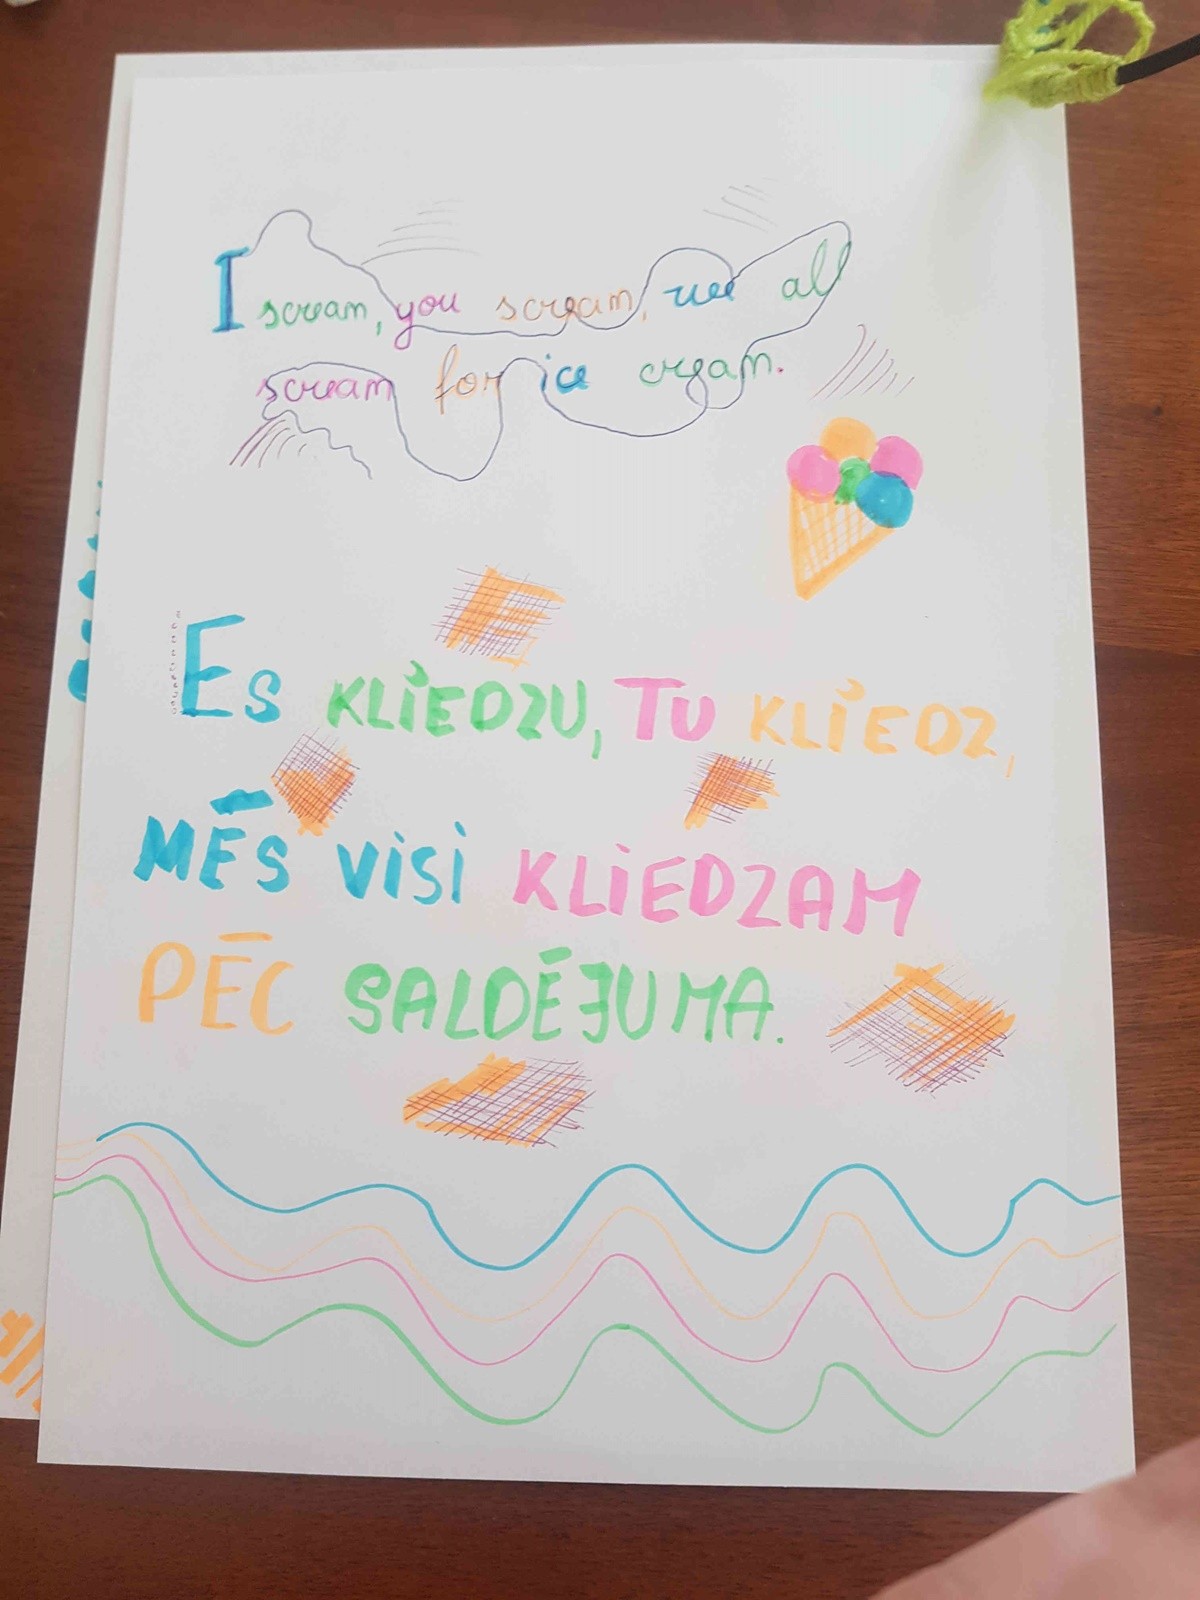 I scream, you scream, we all
scream for ice cream.
Es KLIEDZU, TU KLIEDZ,
MĒS VISI KLIEDZAM
PĒC SALDĒJUMA.